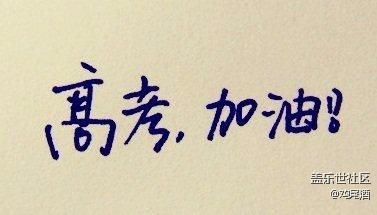 高考,加油!!
盖乐世社区
@鸡尾酒